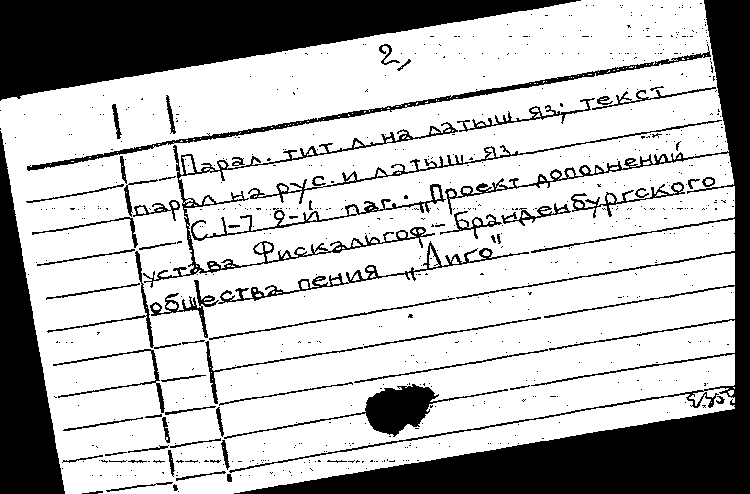 2,
Парал. тит. л. на латыш. яз; текст
парал на рус. и латыш. яз.
С. 1-7 2-й паг.: „Проект дополнений
устава Фискальгоф-Бранденбургского
общества пения „Лиго"